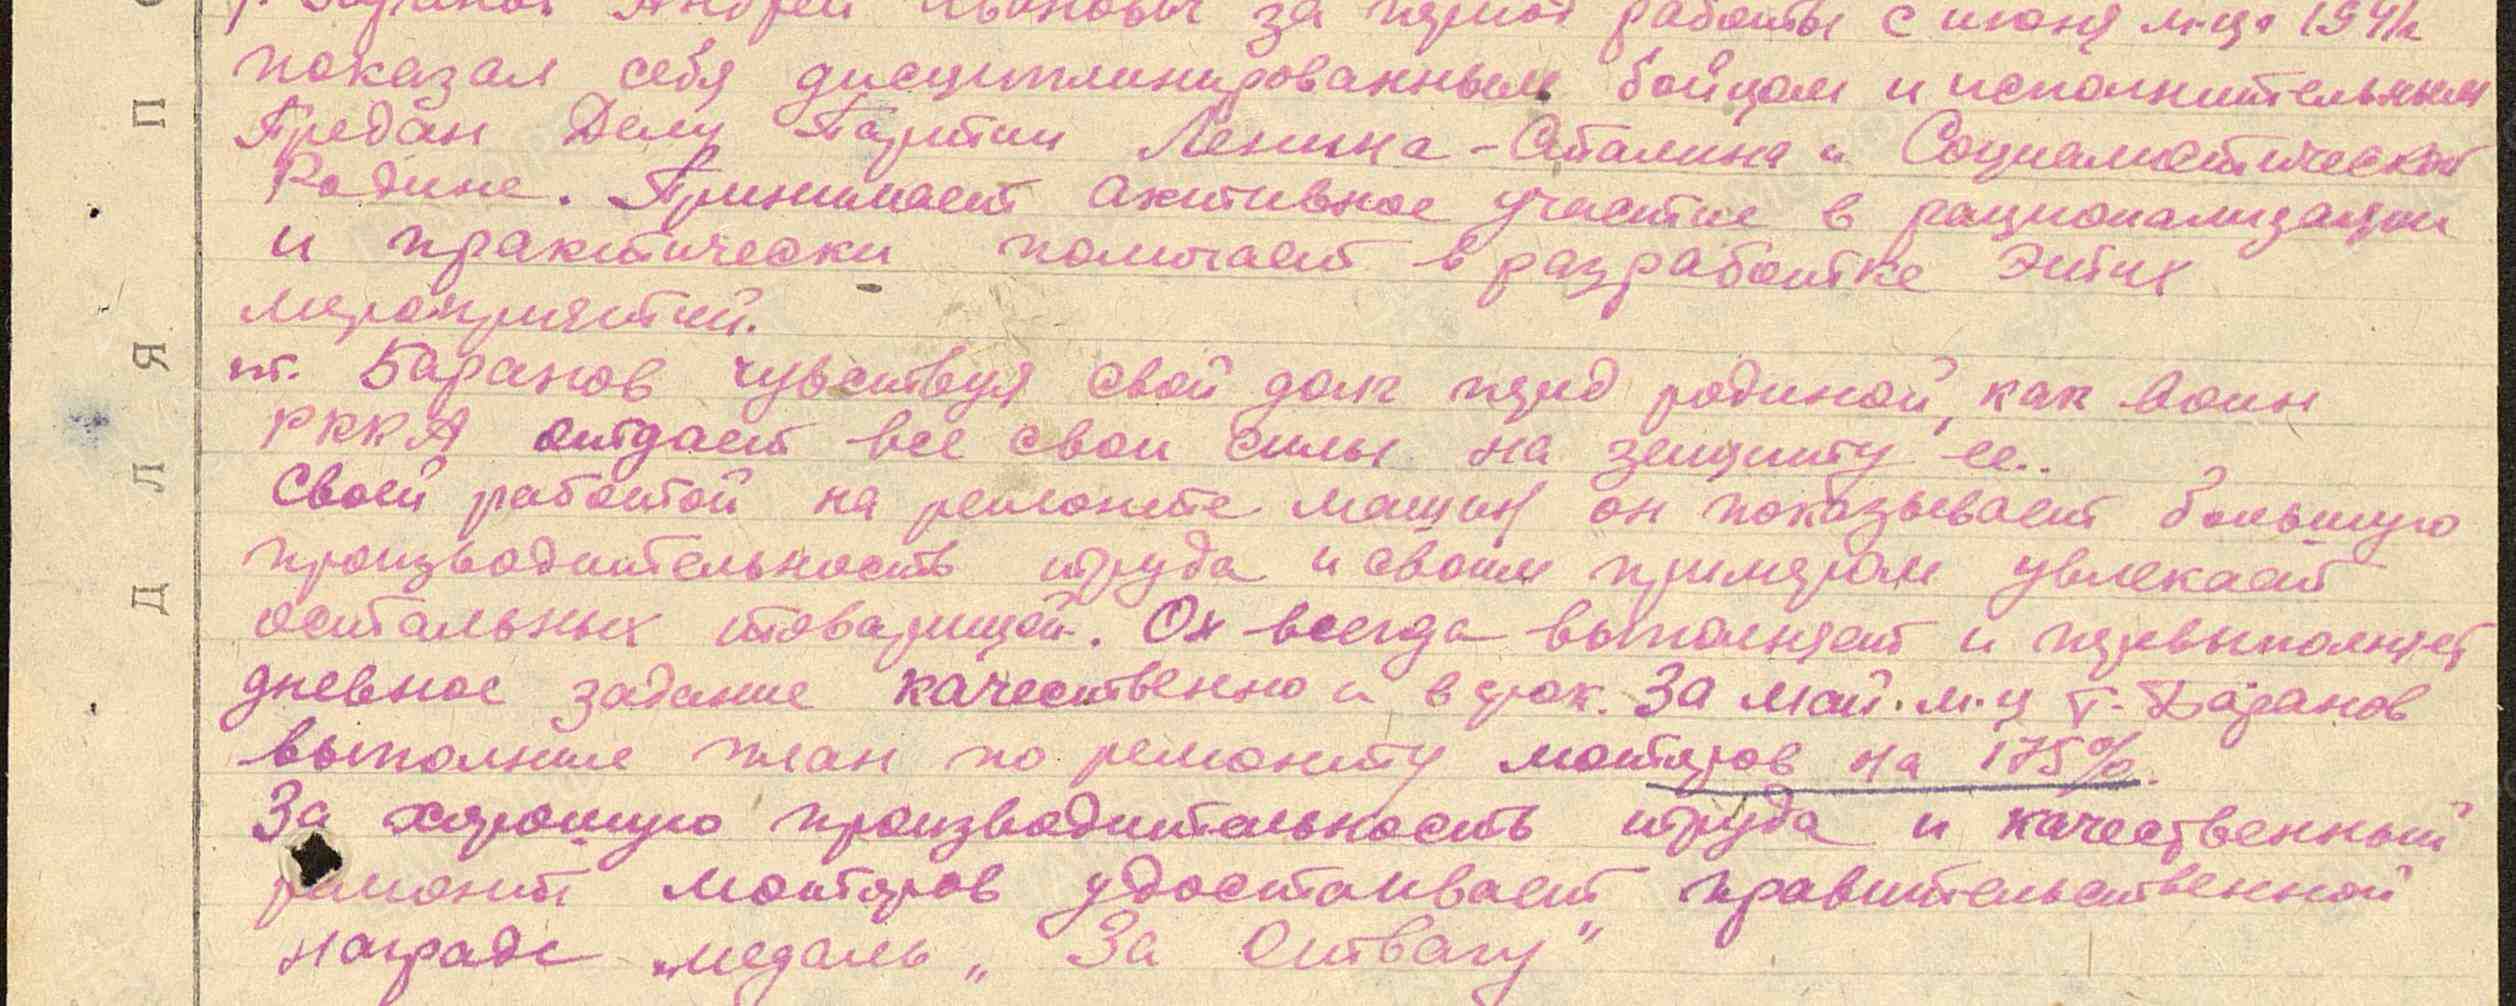 Баранов Андрей Иванович за период работы с июня м-ца 1941г
показал себя дисциплинированным бойцом и исполнительным
Предан Делу Партии Ленина-Сталина и Социалистической
Родине. Принимает активное участие в рационализации
и практически помогает в разработке этих
мероприятий.
т. Баранов чувствуя свой долг перед родиной, как воин
РККА отдает все свои силы на защиту ее..
Своей работой на ремонте машин он показывает большую
производительность труда и своим примером увлекает
остальных товарищей. Он всегда выполняет и перевыполняет
дневное задание качественно и в срок. За май.м-ц т. Баранов
выполнил план по ремонту моторов на 175%.
За хорошую производительность труда и качественный
ремонт моторов удостаивает правительственной
награде „медаль „За Отвагу"
Д Л Я П